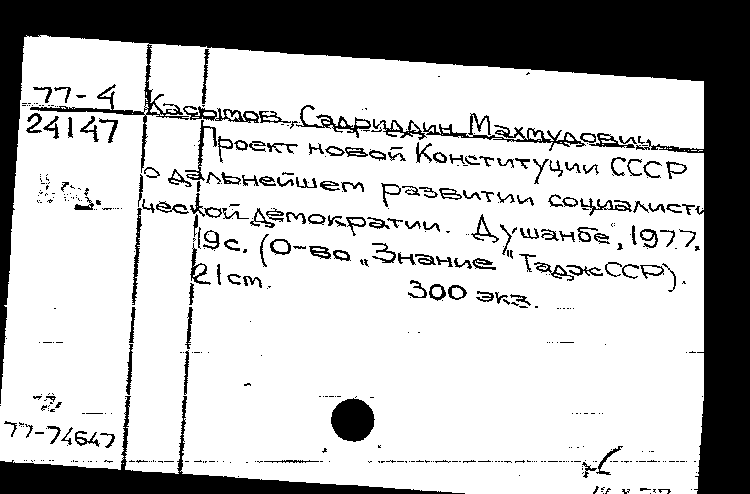 77-4 Касымов, Садриддин Махмудович.
24147 Проект новой Конституции СССР
о дальнейшем развитии социалисти
ческой демократии. Душанбе, 1977.
19с. (О-во „Знание" ТаджССР).
21см. 300 экз.
77-74647